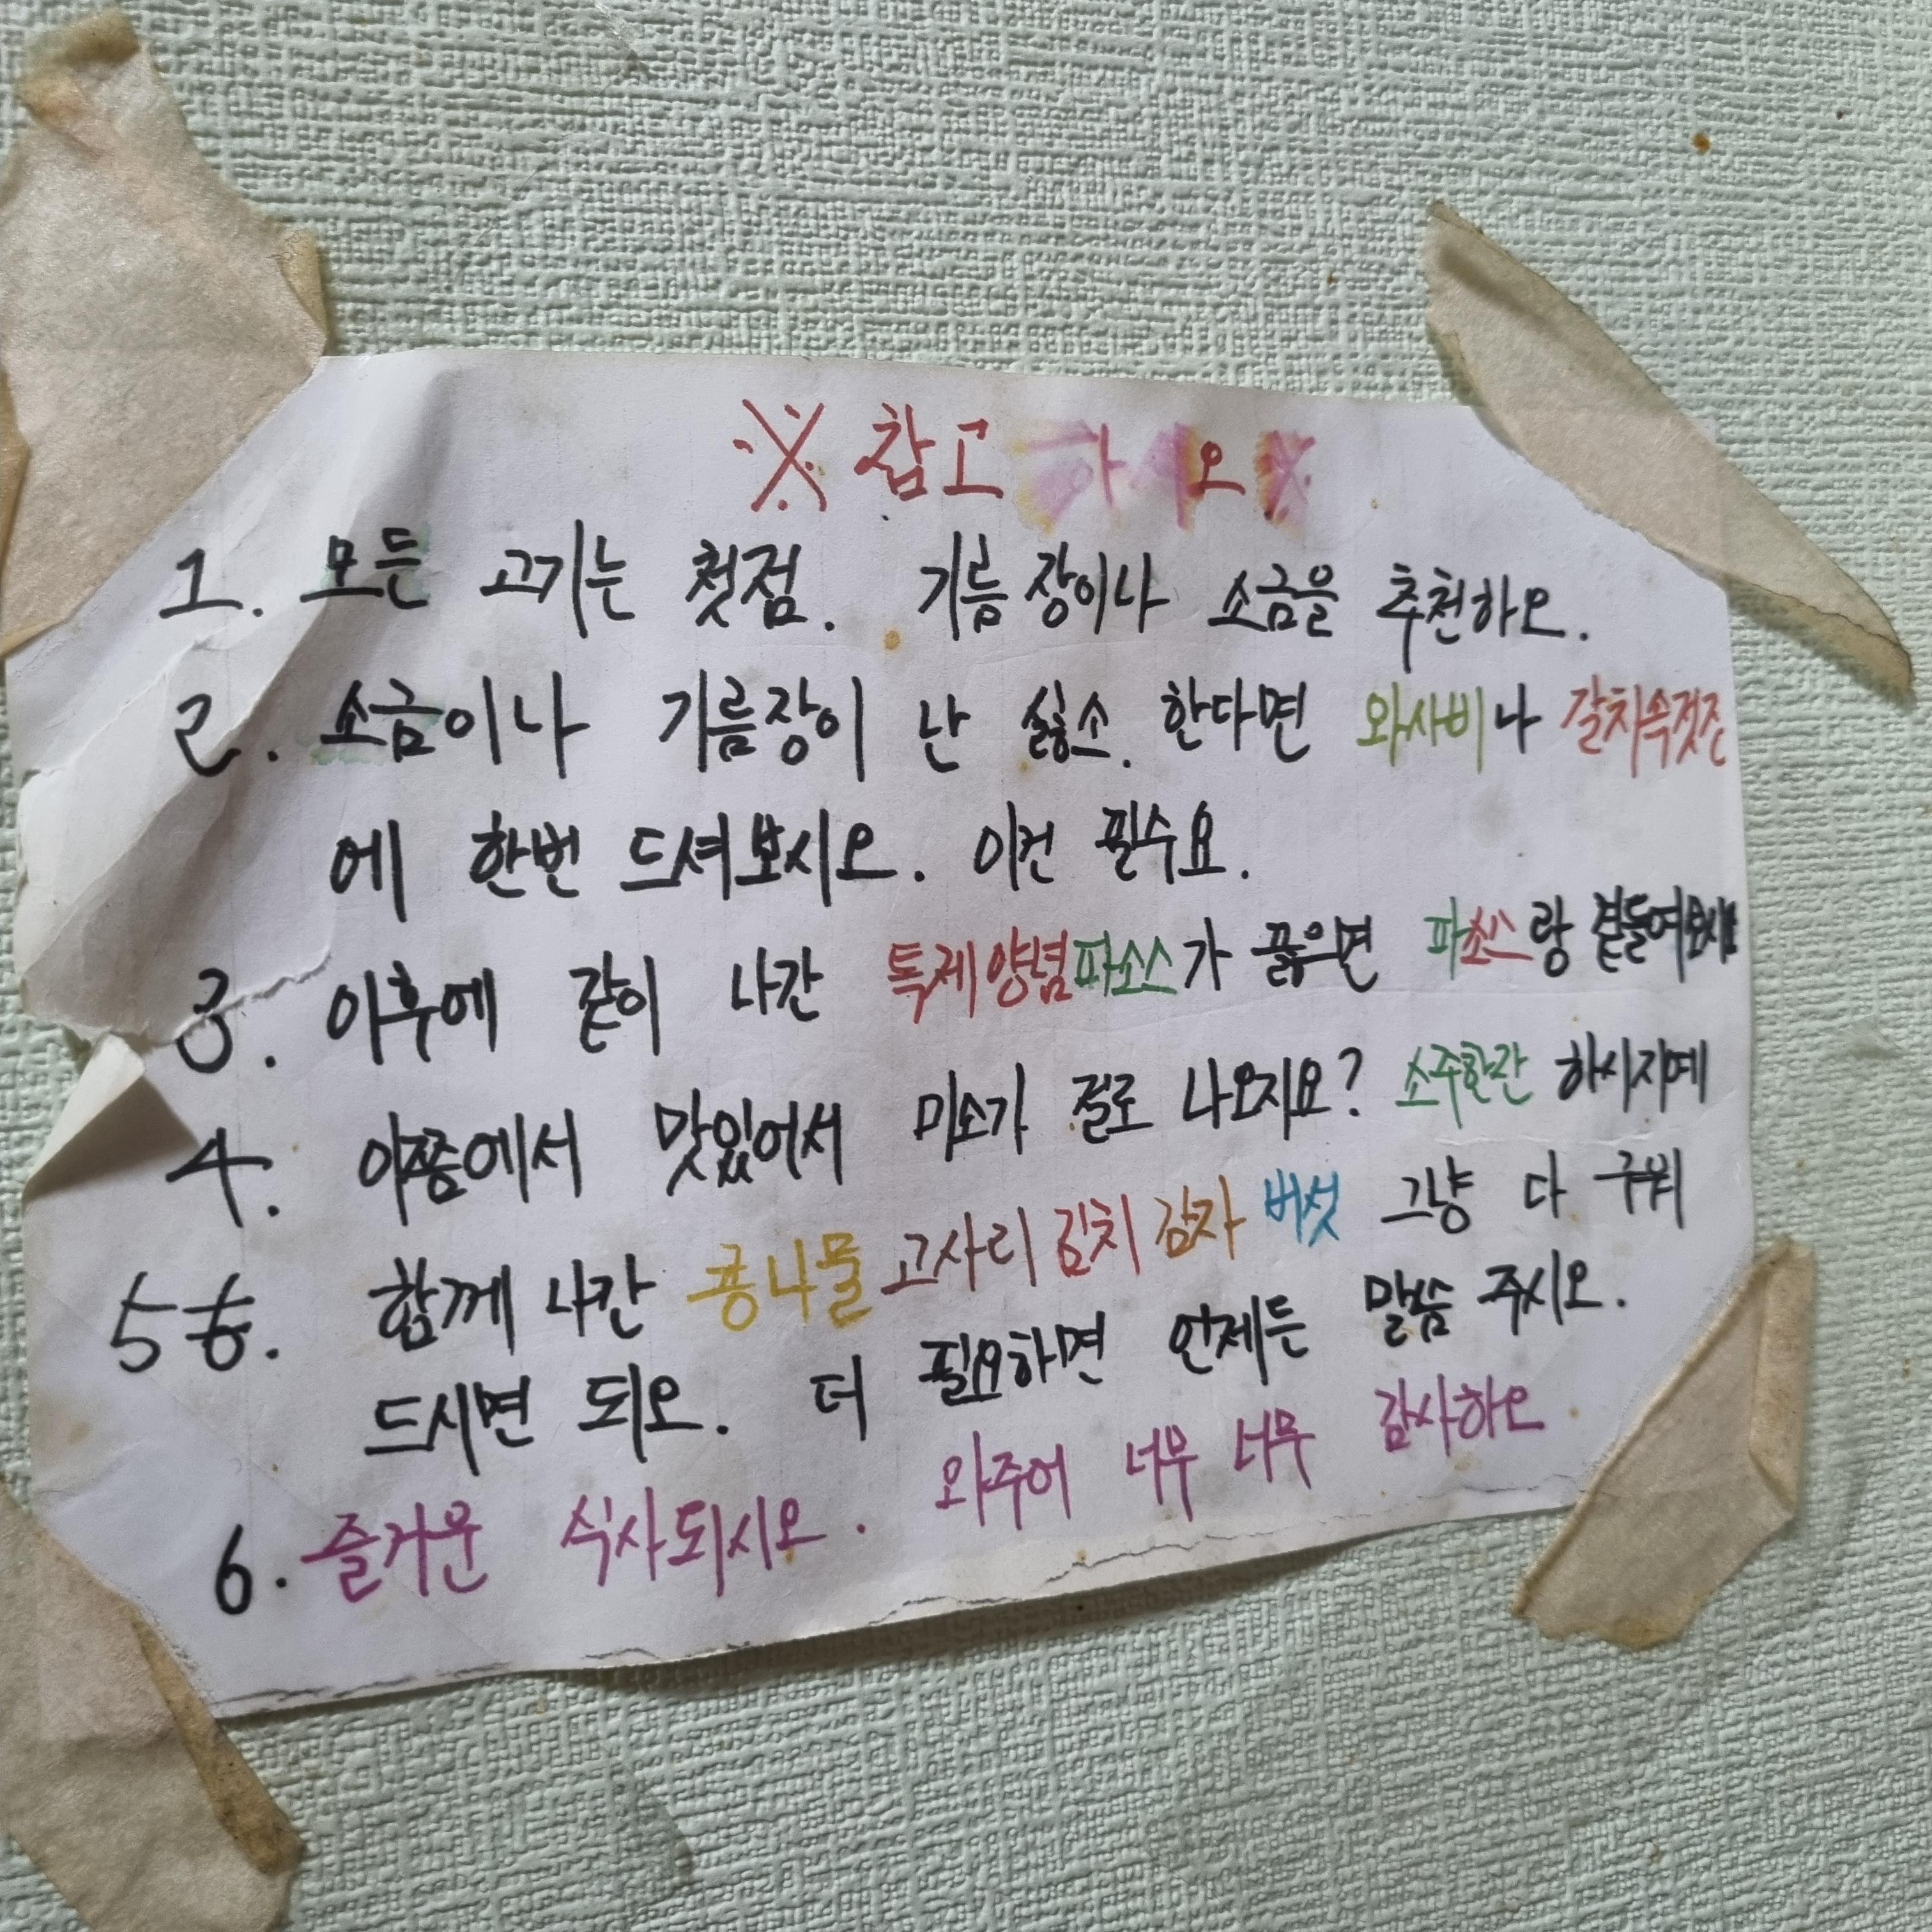 ※ 참고 하시오 ※
1. 모든 고기는 첫점. 기름장이나 소금을 추천하오.
2. 소금이나 기름장이 난 싫소. 한다면 와사비나 갈치속젓
에 한번 드셔보시오. 이건 필수요.
3. 이후에 같이 나간 특제양념파소스가 끓으면 파소스랑 곁들여보시
4. 이쯤에서 맛있어서 미소가 절로 나오지요? 소주한잔 하시지예
5. 함께 나간 콩나물 고사리 김치 감자 버섯 그냥 다 구워
드시면 되오. 더 필요하면 언제든 말씀 주시오.
6. 즐거운 식사되시오. 와주어 너무 너무 감사하오